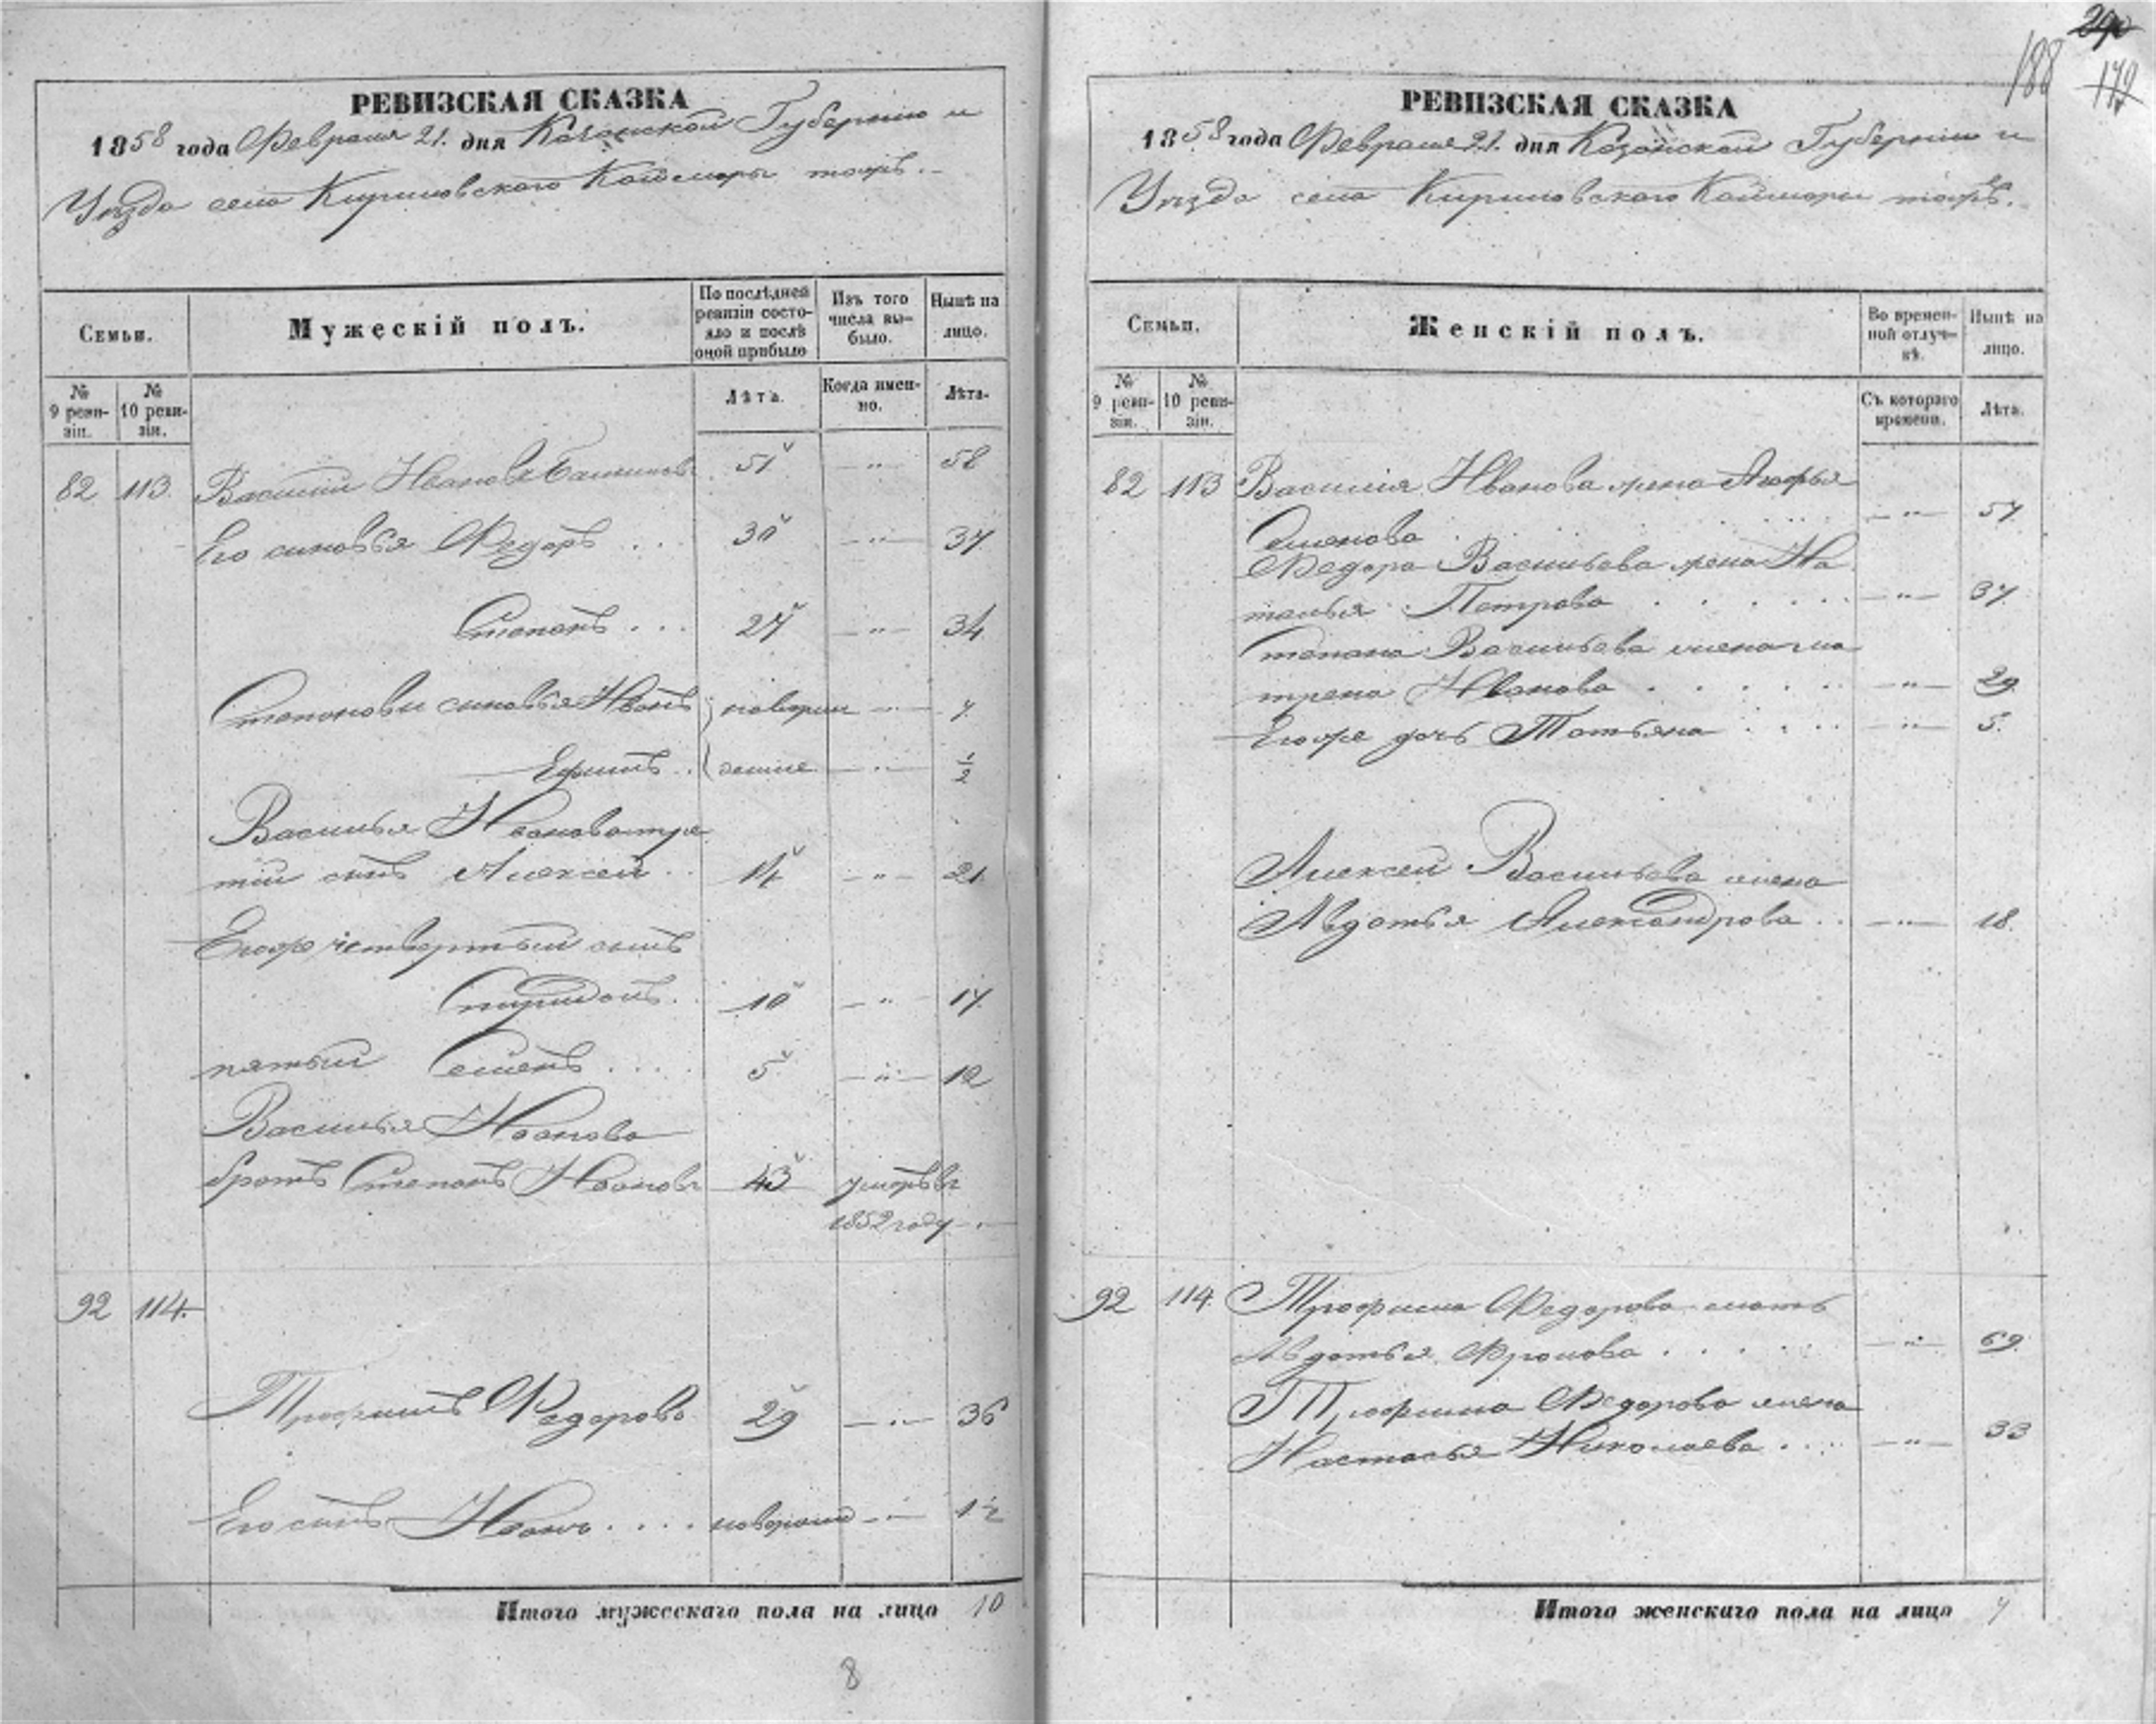 РЕВИЗСКАЯ СКАЗКА
1858 года Февраля 21. дня Казанской Губернии и
Уезда села Кириловского Каймары тожъ.
Семьи.
Мужескій полъ.
По послѣдней ревизіи состояло и послѣ оной прибыло
Изъ того числа выбыло.
Нынѣ на лицо.
№ 9 ревизіи.
№ 10 ревизіи.
Лѣта.
Когда именно.
Лѣта.
82 113. Василий Ивановъ 51 — " — 58
Его сыновья Федоръ . . . 30 — " — 37
Степанъ . . . 27 — " — 34
Степановы сыновья Иванъ новорож — " — 7.
Ефимъ . . денные — " — ½
Василья Иванова тре
тий сынъ Алексей . . 14 — " — 21
Егоже четвертый сынъ
Спиридонъ. 10 — " — 17.
пятый Семенъ . . . . 5 — " — 12
Василья Иванова
братъ Степанъ Ивановъ 43 умеръ въ
1852 году — . —
92 114.
Трофимъ Федоровъ 29 — " — 36
Его сынъ Иванъ . . . . новорожд — " — 1½
Итого мужескаго пола на лицо 10
8
290
188
179
РЕВИЗСКАЯ СКАЗКА
1858 года Февраля 21. дня Казанской Губернии и
Уезда села Кириловского Каймары тожъ.
Семьи.
Женскій полъ.
Во временной отлучкѣ.
Нынѣ на лицо.
№ 9 ревизіи.
№ 10 ревизіи.
Съ котораго времени.
Лѣта.
82 113 Василия Иванова жена
Семенова — " — 57.
Федора Васильева жена На
талья Петрова . . . . . . — " — 37.
Степана Васильева жена Ма
трена Иванова . . . . . . — " — 29.
Егоже дочь Татьяна . . . . — " — 5.
Алексея Васильева жена
Авдотья Александрова . . — " — 18.
92 114. Трофима Федорова мать
Авдотья Фролова . . . . . — " — 69.
Трофима Федорова жена
Настасья Николаева . . . . — " — 33
Итого женскаго пола на лицо 7